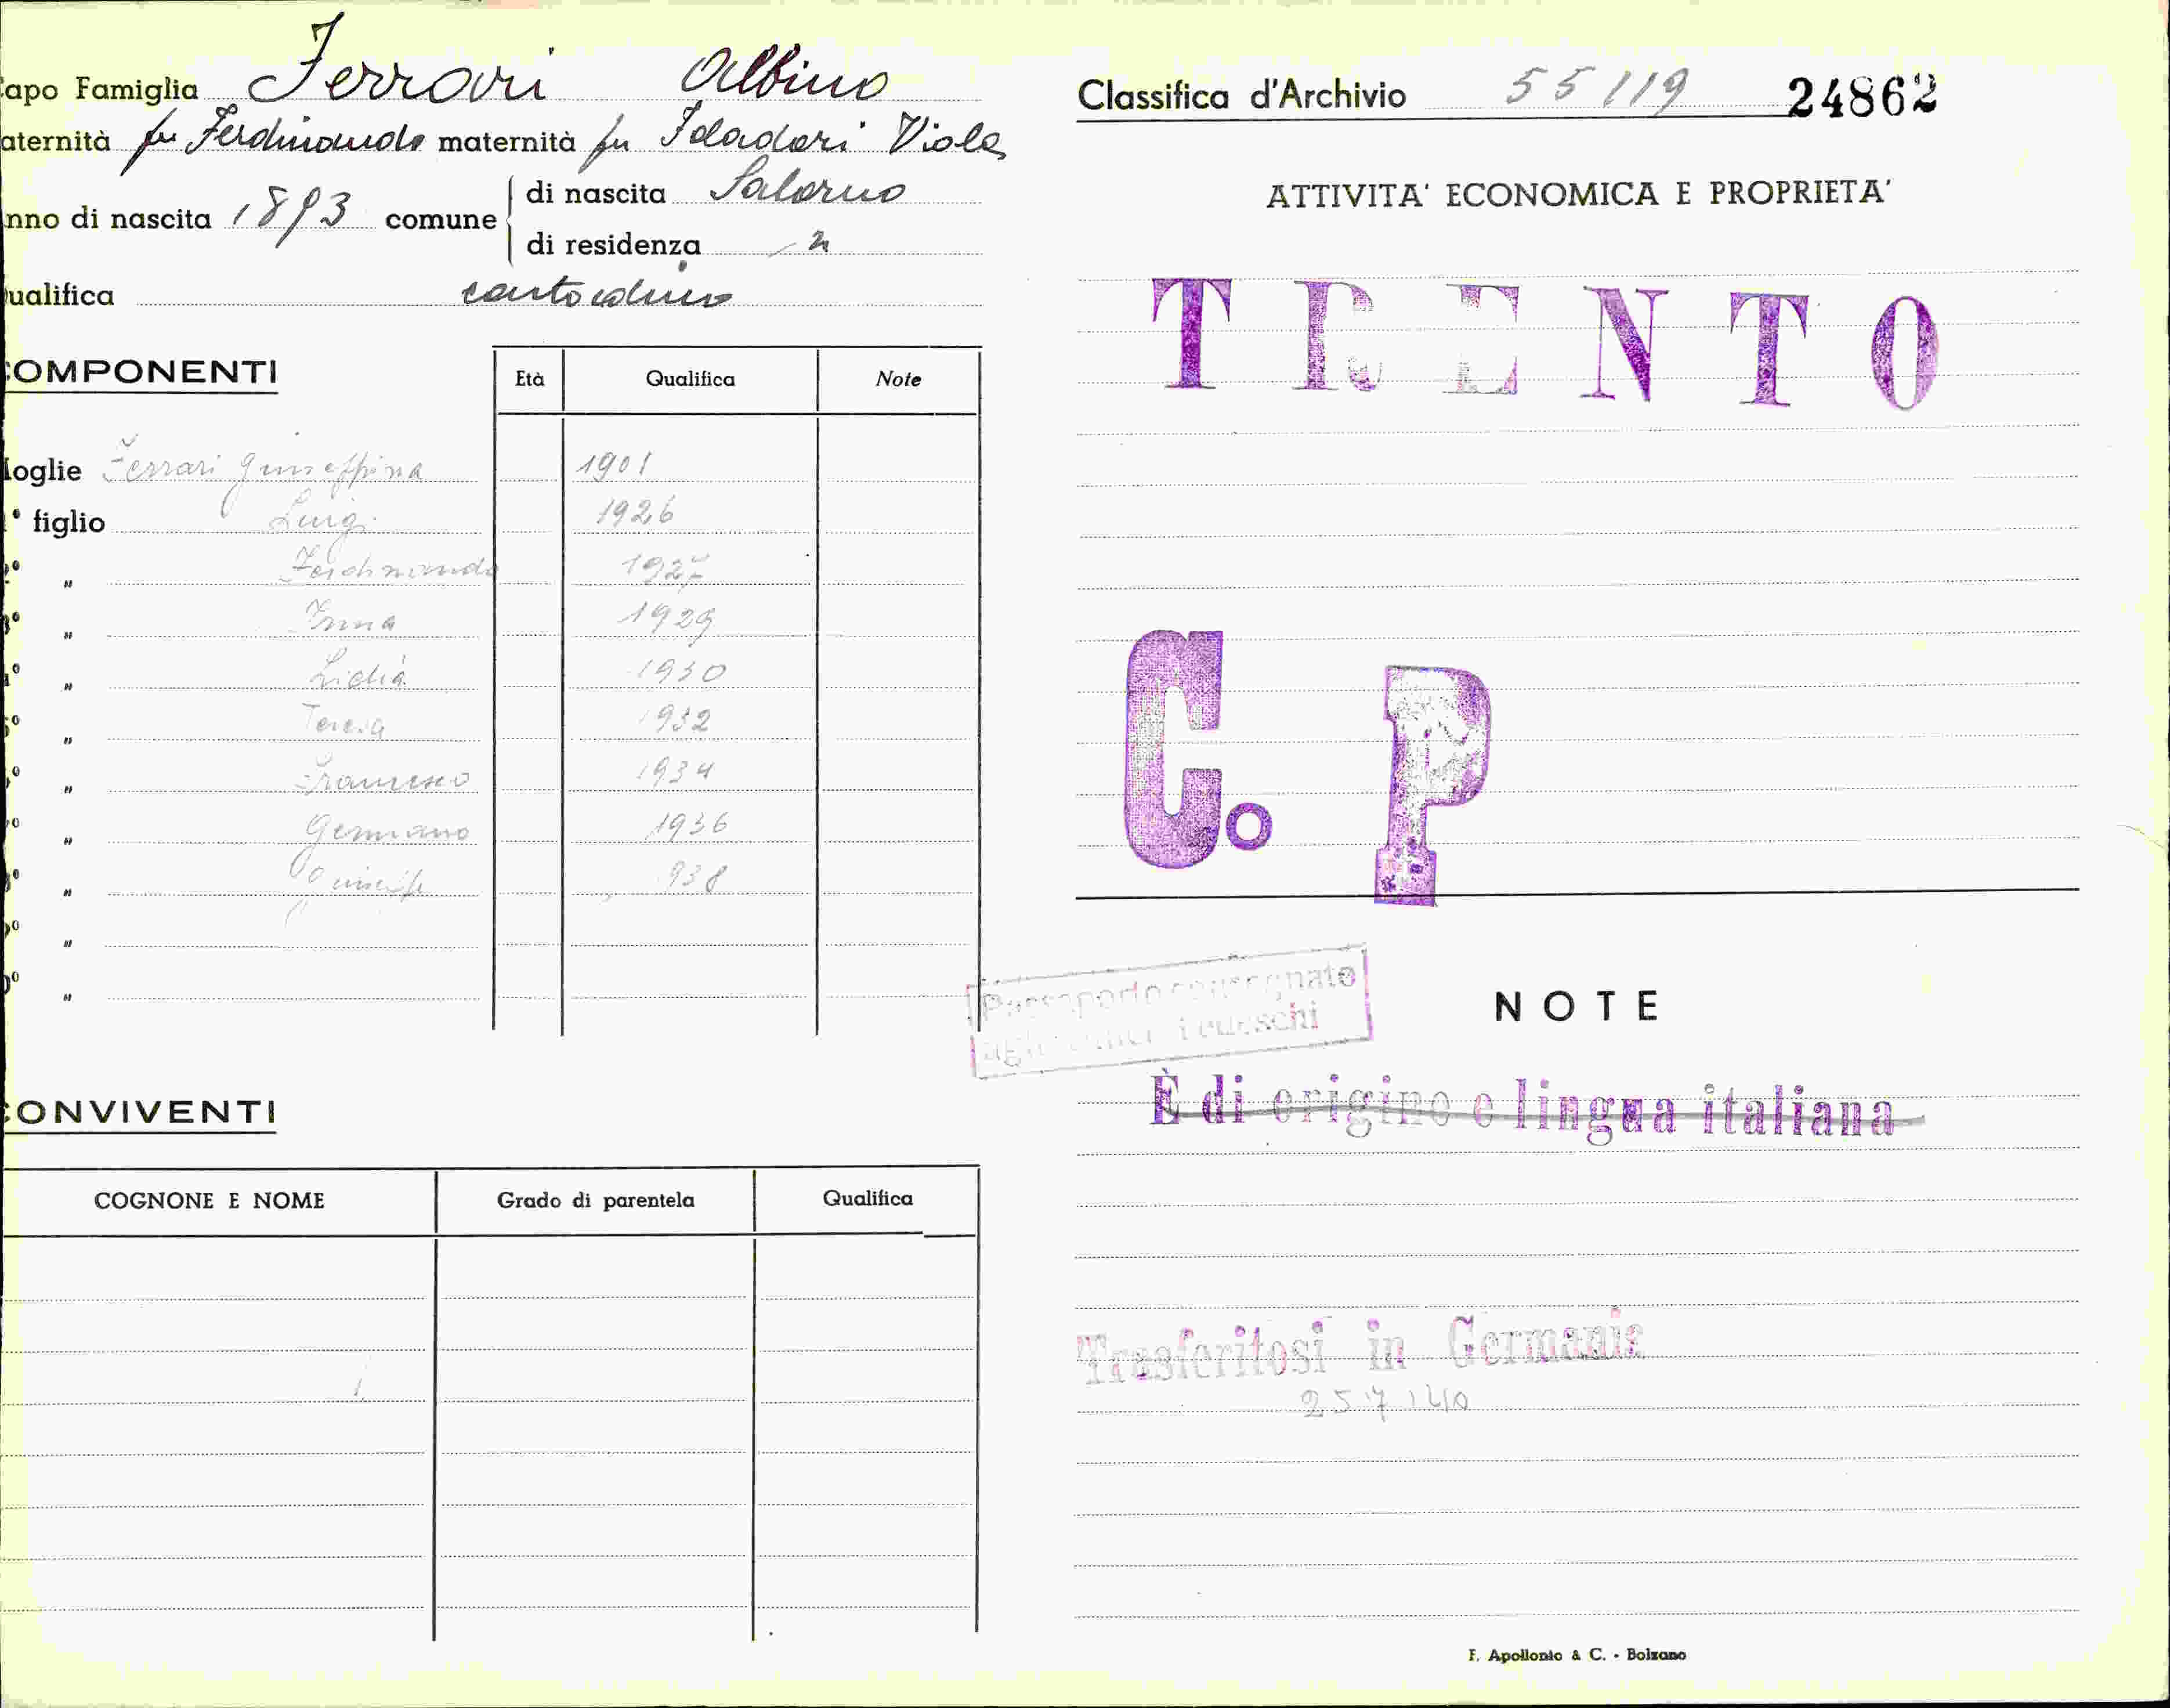 apo Famiglia Ferrari Albino
aternità fu Ferdinando maternità fu Viola
nno di nascita 1893 comune di nascita Salorno
di residenza
ualifica
OMPONENTI
Età Qualifica Note
oglie Ferrari Giuseppina 1901
° figlio Luigi 1926
° " Ferdinando 1927
° " Irma 1929
° " Lidia 1930
° " Teresa 1932
° " Francesco 1934
° " Germano 1936
° " 938
° "
° "
ONVIVENTI
COGNONE E NOME Grado di parentela Qualifica
Classifica d'Archivio 55119 24862
ATTIVITA' ECONOMICA E PROPRIETA'
TRENTO
C. P
Passaporto consegnato
agli uffici tedeschi
NOTE
È di origine e lingua italiana
Trasferitosi in Germania
25 7 40
F. Apollonio & C. - Bolzano